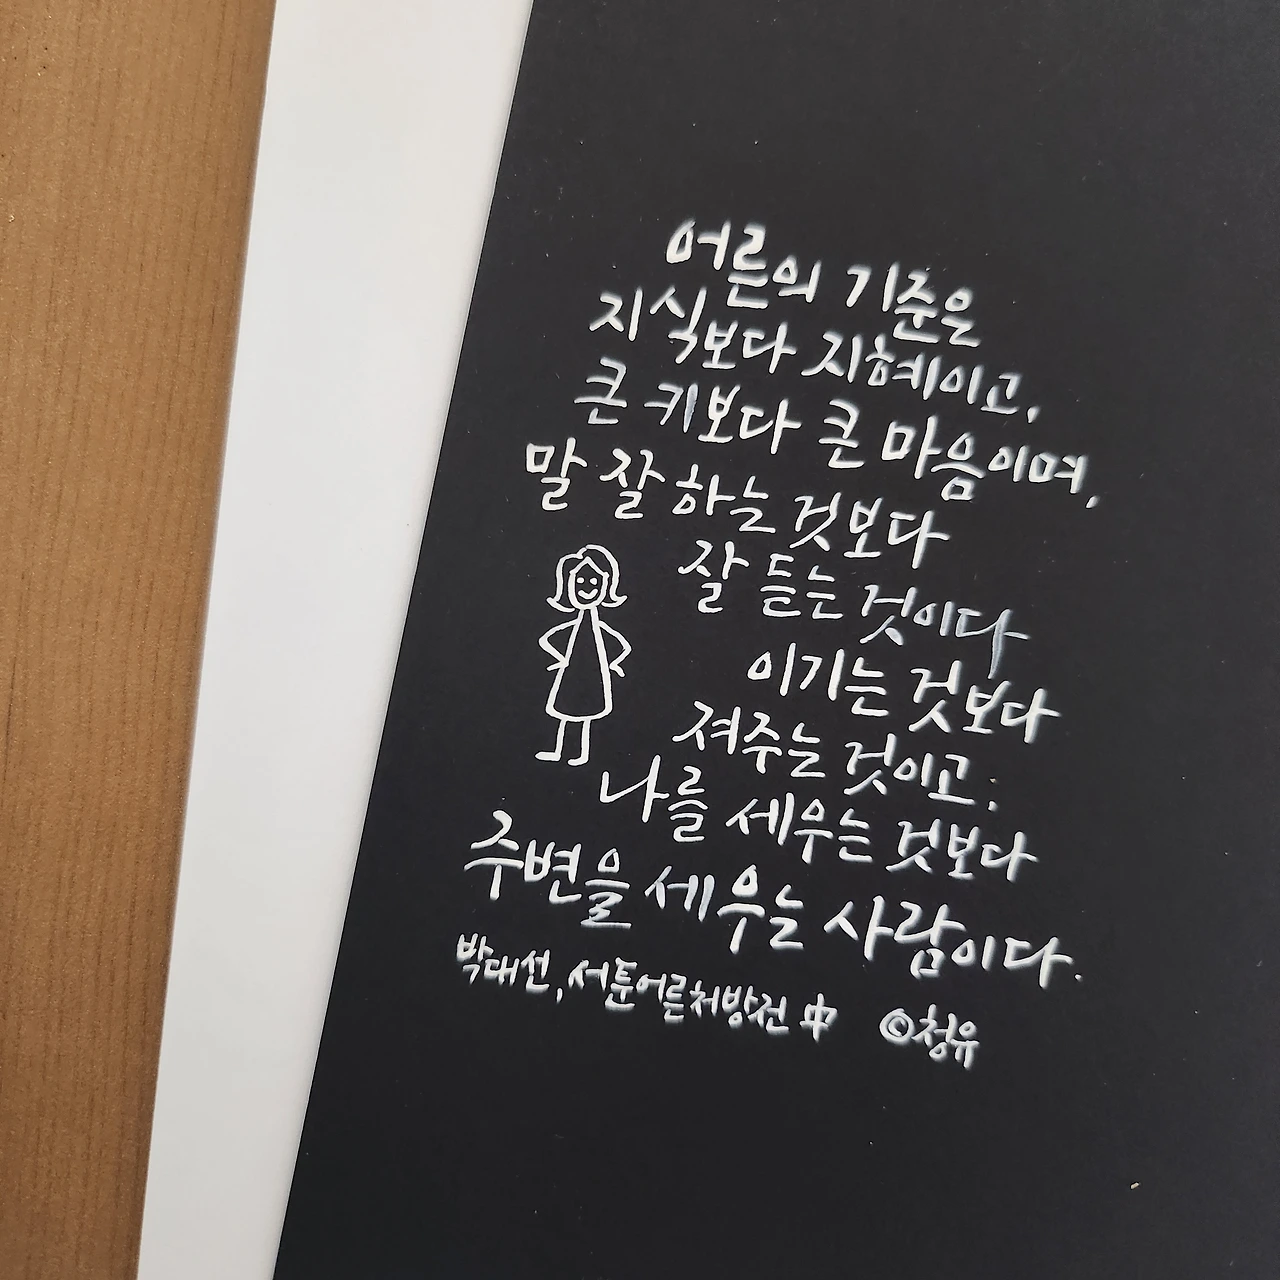 어른의 기준은
지식보다 지혜이고,
큰 키보다 큰 마음이며,
말 잘 하는 것보다
잘 듣는 것이다
이기는 것보다
져주는 것이고;
나를 세우는 것보다
주변을 세우는 사람이다.
박대선, 서툰어른처방전 中 ©청유